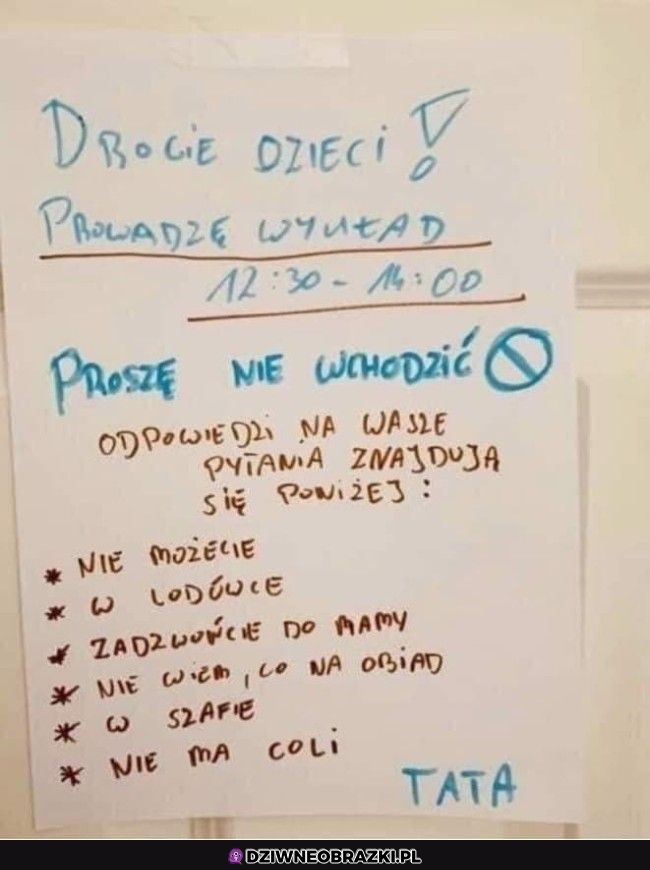 DROGIE DZIECI!
PROWADZĘ WYKŁAD
12:30 - 14:00
PROSZĘ NIE WCHODZIĆ
ODPOWIEDZI NA WASZE
PYTANIA ZNAJDUJĄ
SIĘ PONIŻEJ:
* NIE MOŻECIE
* W LODÓWCE
* ZADZWOŃCIE DO MAMY
* NIE WIEM, CO NA OBIAD
* W SZAFIE
* NIE MA COLI
TATA
DZIWNEOBRAZKI.PL